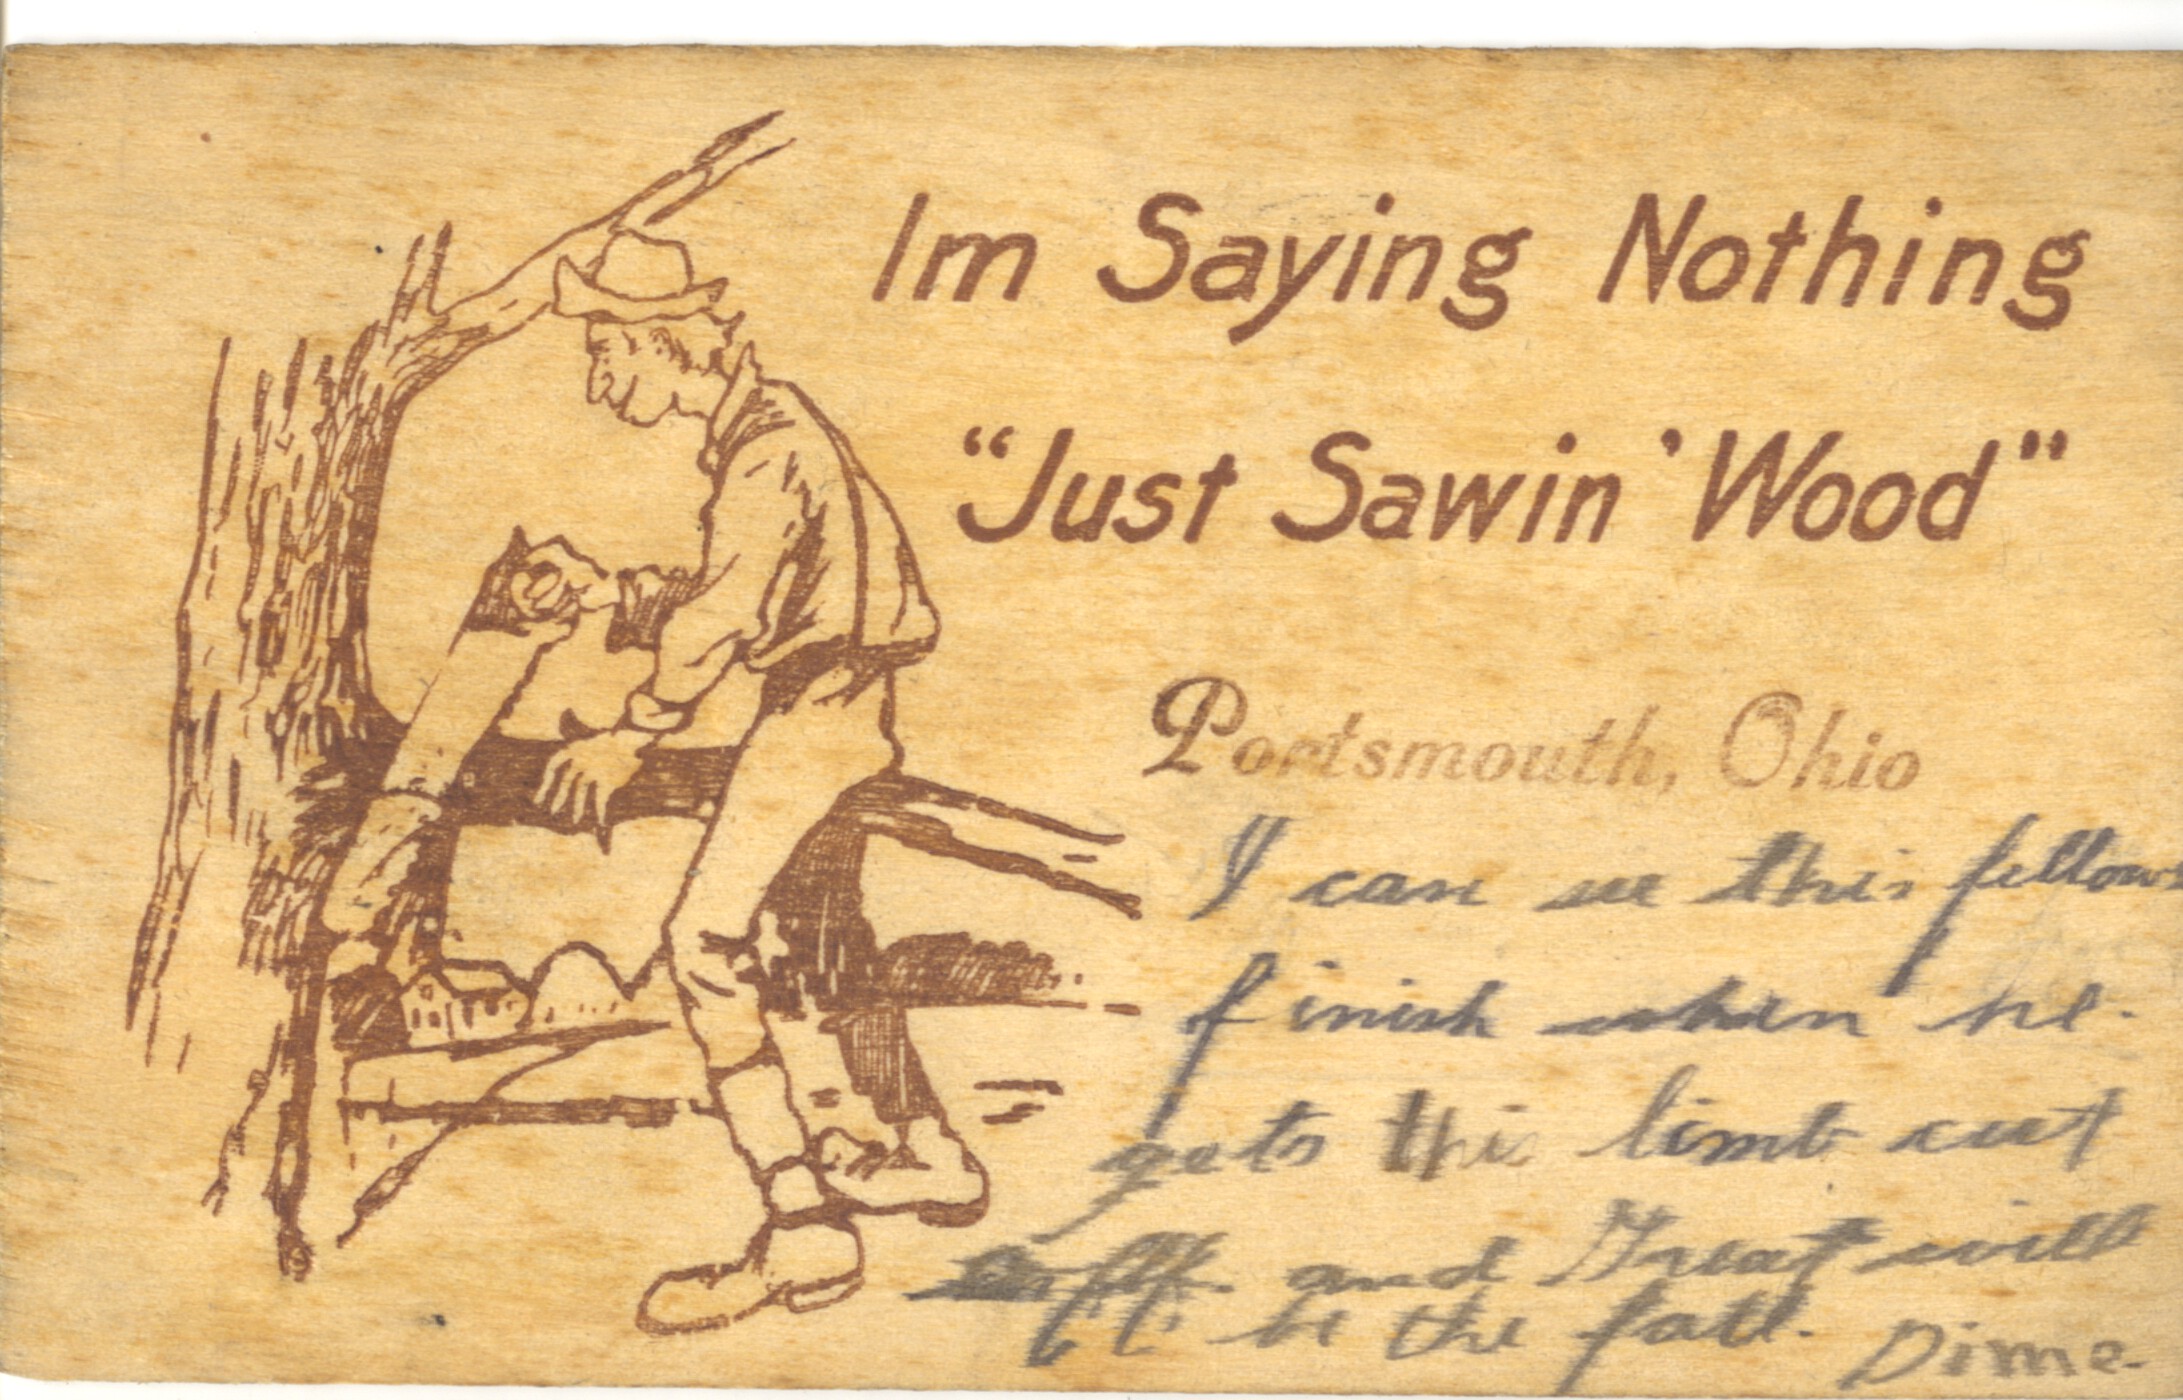 Im Saying Nothing
"Just Sawin' Wood"
Portsmouth, Ohio
I can see this fellows
finish when he.
gets this limb cut
off and Great will
be the fall.
Dime-